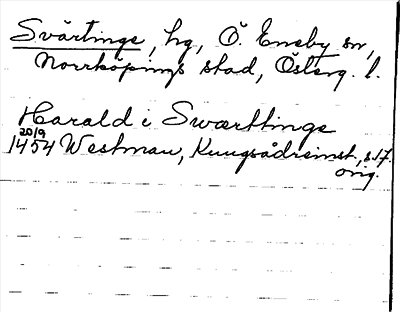 Svärtinge, hg, Ö. Eneby sn,
Norrköpings stad, Österg. l.
Harald i Swærttinge
20/9
1454 Westman, Kungsådreinst., s. 17.
orig.